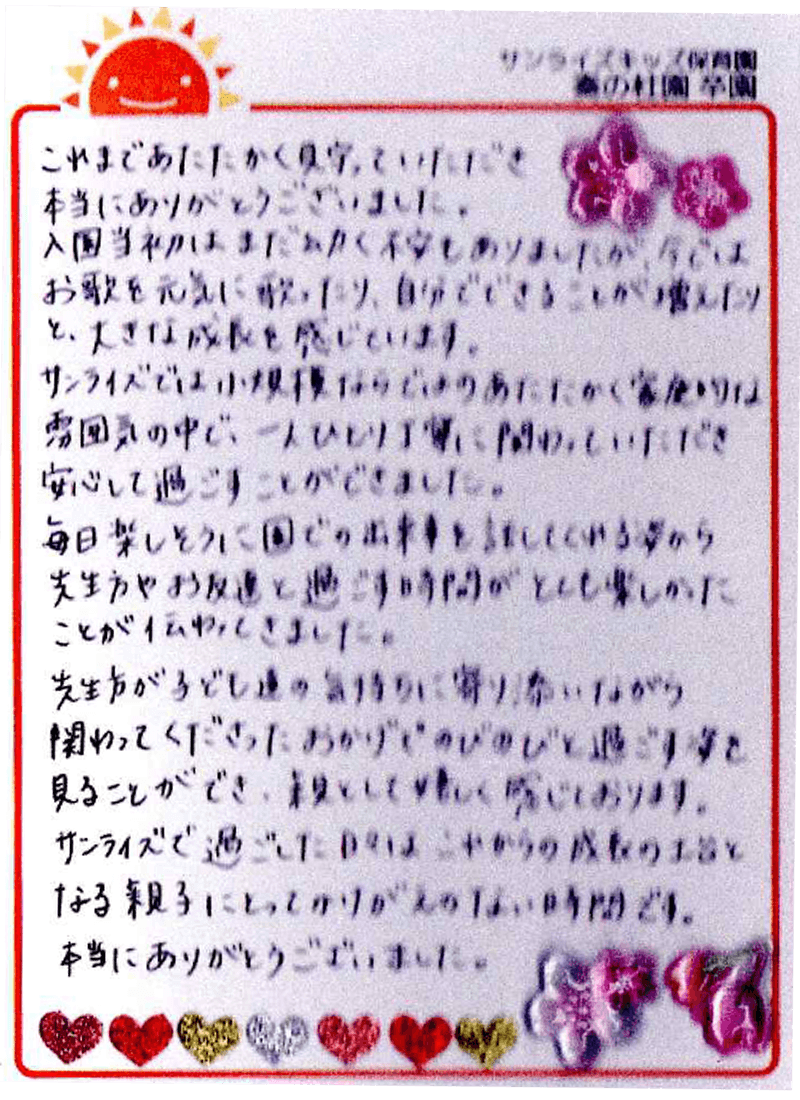 サンライズキッズ保育園
の杜園 卒園
これまであたたかく見守っていただき
本当にありがとうございました。
入園当初はまだ幼く不安もありましたが、今では
お歌を元気に歌ったり、自分でできることが増えたり
と、大きな成長を感じています。
サンライズでは小規模ならではのあたたかく家庭的な
雰囲気の中で、一人ひとり丁寧に関わっていただき
安心して過ごすことができました。
毎日楽しそうに園での出来事を話してくれる姿から
先生方やお友達と過ごす時間がとても楽しかった
ことが伝わってきました。
先生方が子ども達の気持ちに寄り添いながら
関わってくださったおかげでのびのびと過ごす姿を
見ることができ、親として嬉しく感じております。
サンライズで過ごした日々はこれからの成長の土台と
なる親子にとってかけがえのない時間です。
本当にありがとうございました。